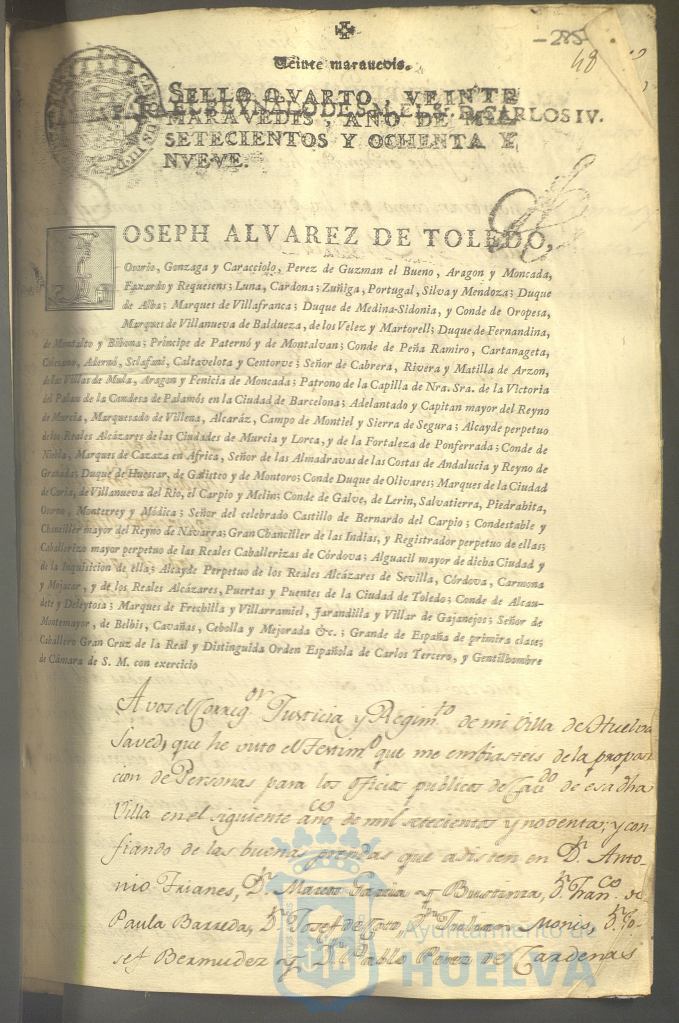 -285-
48
Veinte maravedis.
SELLO QVARTO, VEINTE
REYNADO DE S. M. EL S. D. CARLOS IV.
MARAVEDIS, AÑO DE MIL
SETECIENTOS Y OCHENTA Y
NVEVE.
JOSEPH ALVAREZ DE TOLEDO,
Osorio, Gonzaga y Caracciolo, Perez de Guzman el Bueno, Aragon y Moncada,
Faxardo y Requesens; Luna, Cardona; Zuñiga, Portugal, Silva y Mendoza; Duque
de Alba; Marques de Villafranca; Duque de Medina-Sidonia, y Conde de Oropesa,
Marques de Villanueva de Baldueza, de los Velez y Martorell; Duque de Fernandina,
de Montalto y Bibona; Principe de Paternó y de Montalvan; Conde de Peña Ramiro, Cartanageta,
Colesano, Adernó, Sclafani, Caltavelota y Centorve; Señor de Cabrera, Rivera y Matilla de Arzon,
de las Villas de Mula, Aragon y Fenicia de Moncada; Patrono de la Capilla de Nra. Sra. de la Victoria
del Palau de la Condesa de Palamós en la Ciudad de Barcelona; Adelantado y Capitan mayor del Reyno
de Murcia, Marquesado de Villena, Alcaráz, Campo de Montiel y Sierra de Segura; Alcayde perpetuo
de los Reales Alcázares de las Ciudades de Murcia y Lorca, y de la Fortaleza de Ponferrada; Conde de
Niebla, Marques de Cazaza en Africa, Señor de las Almadravas de las Costas de Andalucia y Reyno de
Granada; Duque de Huescar, de Galisteo y de Montoro; Conde Duque de Olivares; Marques de la Ciudad
de Coria, de Villanueva del Rio, el Carpio y Melin; Conde de Galve, de Lerin, Salvatierra, Piedrabita,
Osorno, Monterrey y Módica; Señor del celebrado Castillo de Bernardo del Carpio; Condestable y
Chanciller mayor del Reyno de Navarra; Gran Chanciller de las Indias, y Registrador perpetuo de ellas;
Caballerizo mayor perpetuo de las Reales Caballerizas de Córdova; Alguacil mayor de dicha Ciudad y
de la Inquisicion de ella; Alcayde Perpetuo de los Reales Alcázares de Sevilla, Córdova, Carmona
y Mojacar, y de los Reales Alcázares, Puertas y Puentes de la Ciudad de Toledo; Conde de Alcau-
dete y Deleytosa; Marques de Frechilla y Villarramiel, Jarandilla y Villar de Gajanejos; Señor de
Montemayor, de Belbis, Cavañas, Cebolla y Mejorada &c.; Grande de España de primira clase;
Caballero Gran Cruz de la Real y Distinguida Orden Española de Carlos Tercero, y Gentilhombre
de Cámara de S. M. con exercicio
A vos el Correg.or Justicia y Regim.to de mi Villa de Huelva
Saved, que he visto el Testim.o que me embiasteis de la propos-
cion de Personas para los oficios publicos de Cav.do de esa dha
Villa en el siguiente año de mil setecientos y noventa; y con-
fiando de las buenas prendas que asisten en D.n Anto-
nio Frianes, D.n Marcos Garcia y Bustinza, D.n Fran.co de
Paula Barreda, D.n Josef de Coto, D.n Julian Monis, D.n Jo-
sef Bermudez y D.n Pablo Perez de Cardenas
Ayuntamiento de
HUELVA